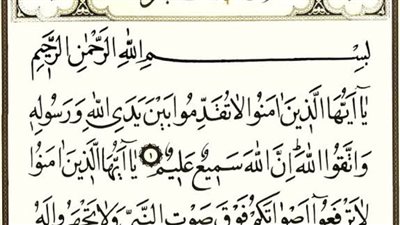 بِسْمِ اللهِ الرَّحْمٰنِ الرَّحِيمِ
يَٓا اَيُّهَا الَّذِينَ اٰمَنُوا لَا تُقَدِّمُوا بَيْنَ يَدَيِ اللهِ وَرَسُولِهِ
وَاتَّقُوا اللهَ اِنَّ اللهَ سَمِيعٌ عَلِيمٌ ١ يَٓا اَيُّهَا الَّذِينَ اٰمَنُوا
لَا تَرْفَعُٓوا اَصْوَاتَكُمْ فَوْقَ صَوْتِ النَّبِيِّ وَلَا تَجْهَرُوا لَهُ